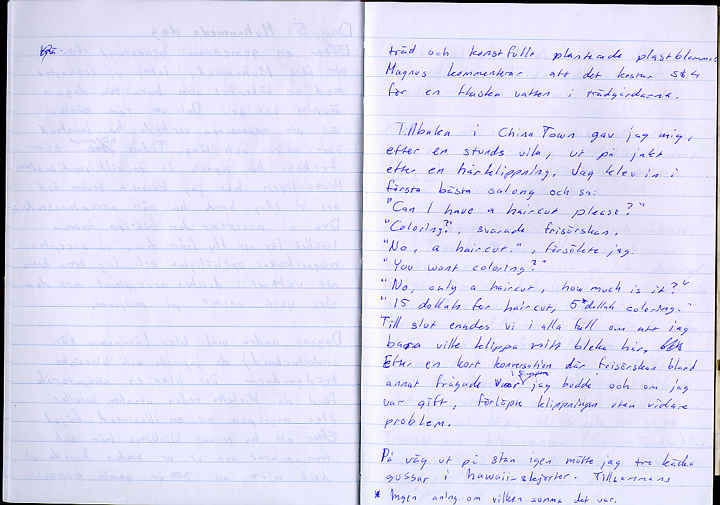 träd och konstfullt planterade plastblommor
Magnus kommenterar att det kostar S$4
för en flaska vatten i trädgårdarna.
Tillbaka i China Town gav jag mig,
efter en stunds vila, ut på jakt
efter en hårklippning. Jag klev in i
första bästa salong och sa:
"Can I have a haircut please?"
"Coloring?", svarade frisörskan.
"No, a haircut.", försökte jag.
"You want coloring?"
"No, only a haircut, how much is it?"
"15 dollah for haircut, 5* dollah coloring."
Till slut enades vi i alla fall om att jag
bara ville klippa mitt bleka hår.
Efter en kort konversation där frisörskan bland
annat frågade var i Singapore jag bodde och om jag
var gift, förlöpte klippningen utan vidare
problem.
På väg ut på stan igen mötte jag tre käcka
gossar i hawaii-skjortor. Tillsammans
* Ingen aning om vilken summa det var.